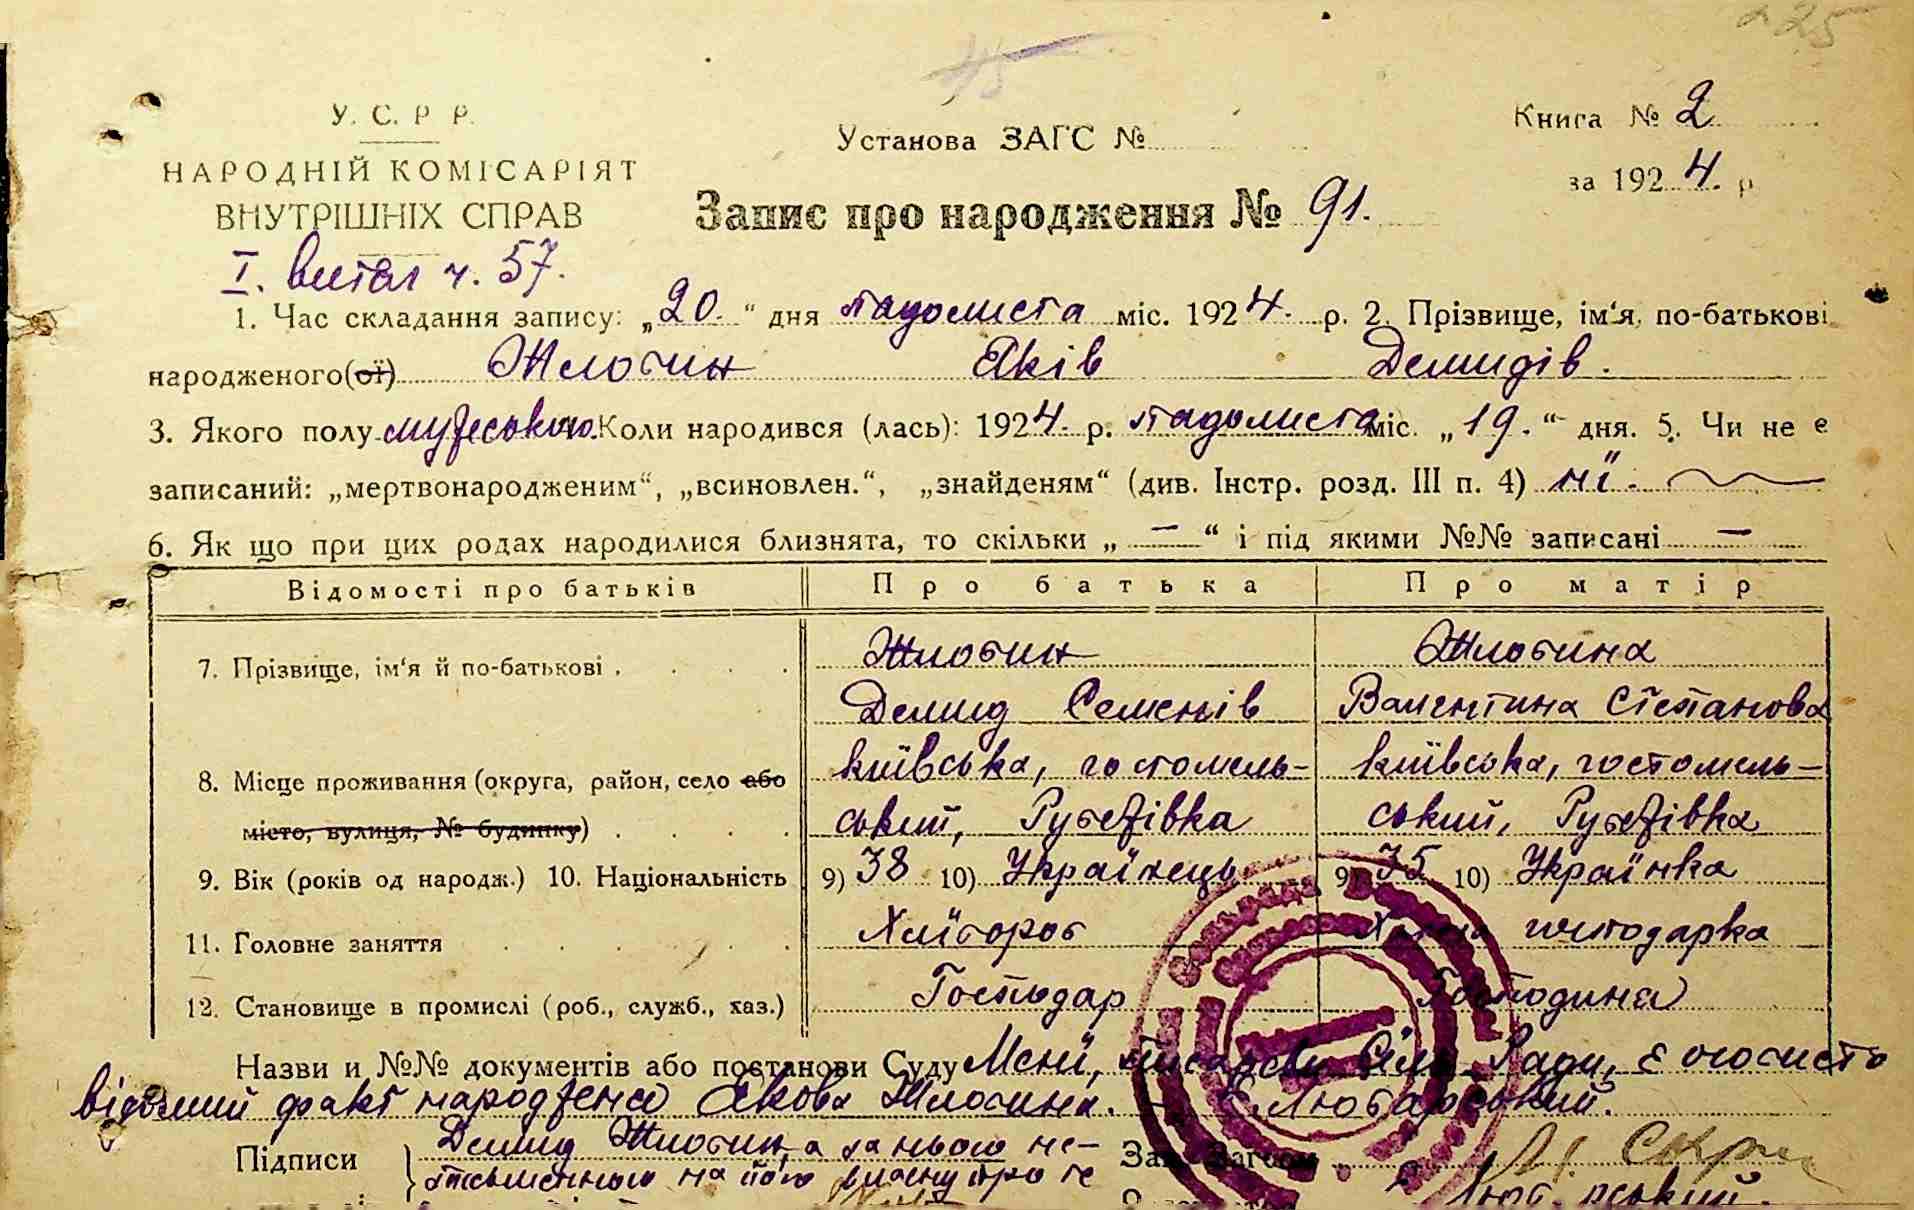 225
У. С. Р. Р.
НАРОДНІЙ КОМІСАРІЯТ
ВНУТРІШНІХ СПРАВ
Установа ЗАГС №
Книга № 2
за 1924. р
Запис про народження № 91.
I. витяг ч. 57.
1. Час складання запису: „20.“ дня падолиста міс. 1924. р. 2. Прізвище, ім‘я, по-батькові
народженого(ої) Жлобин Яків Демидів.
3. Якого полу мужеського. Коли народився (лась): 1924. р. падолиста міс. „19.“ дня. 5. Чи не є
записаний: „мертвонародженим“, „всиновлен.“, „знайденям“ (див. Інстр. розд. III п. 4) нї.
6. Як що при цих родах народилися близнята, то скільки „ — “ і під якими №№ записані —
Відомості про батьків Про батька Про матір
7. Прізвище, ім‘я й по-батькові . Жлобин Жлобина
Демид Семенів Валентина Степанова
8. Місце проживання (округа, район, село або київська, гостомель- київська, гостомель-
місто, вулиця, № будинку) ський, Рубежівка ський, Рубежівка
9. Вік (років од народж.) 10. Національність 9) 38 10) Українець 9) 35 10) Українка
11. Головне заняття Хлїбороб господарка
12. Становище в промислі (роб., служб., хаз.) Господар Господиня
Назви и №№ документів або постанови Суду Менї, писареви Сіль. Ради, є особисто
відомий факт народження Якова Жлобина. Любарський.
Підписи Демид Жлобин, а за нього не-
письменного на його власну
Зав. Загсом